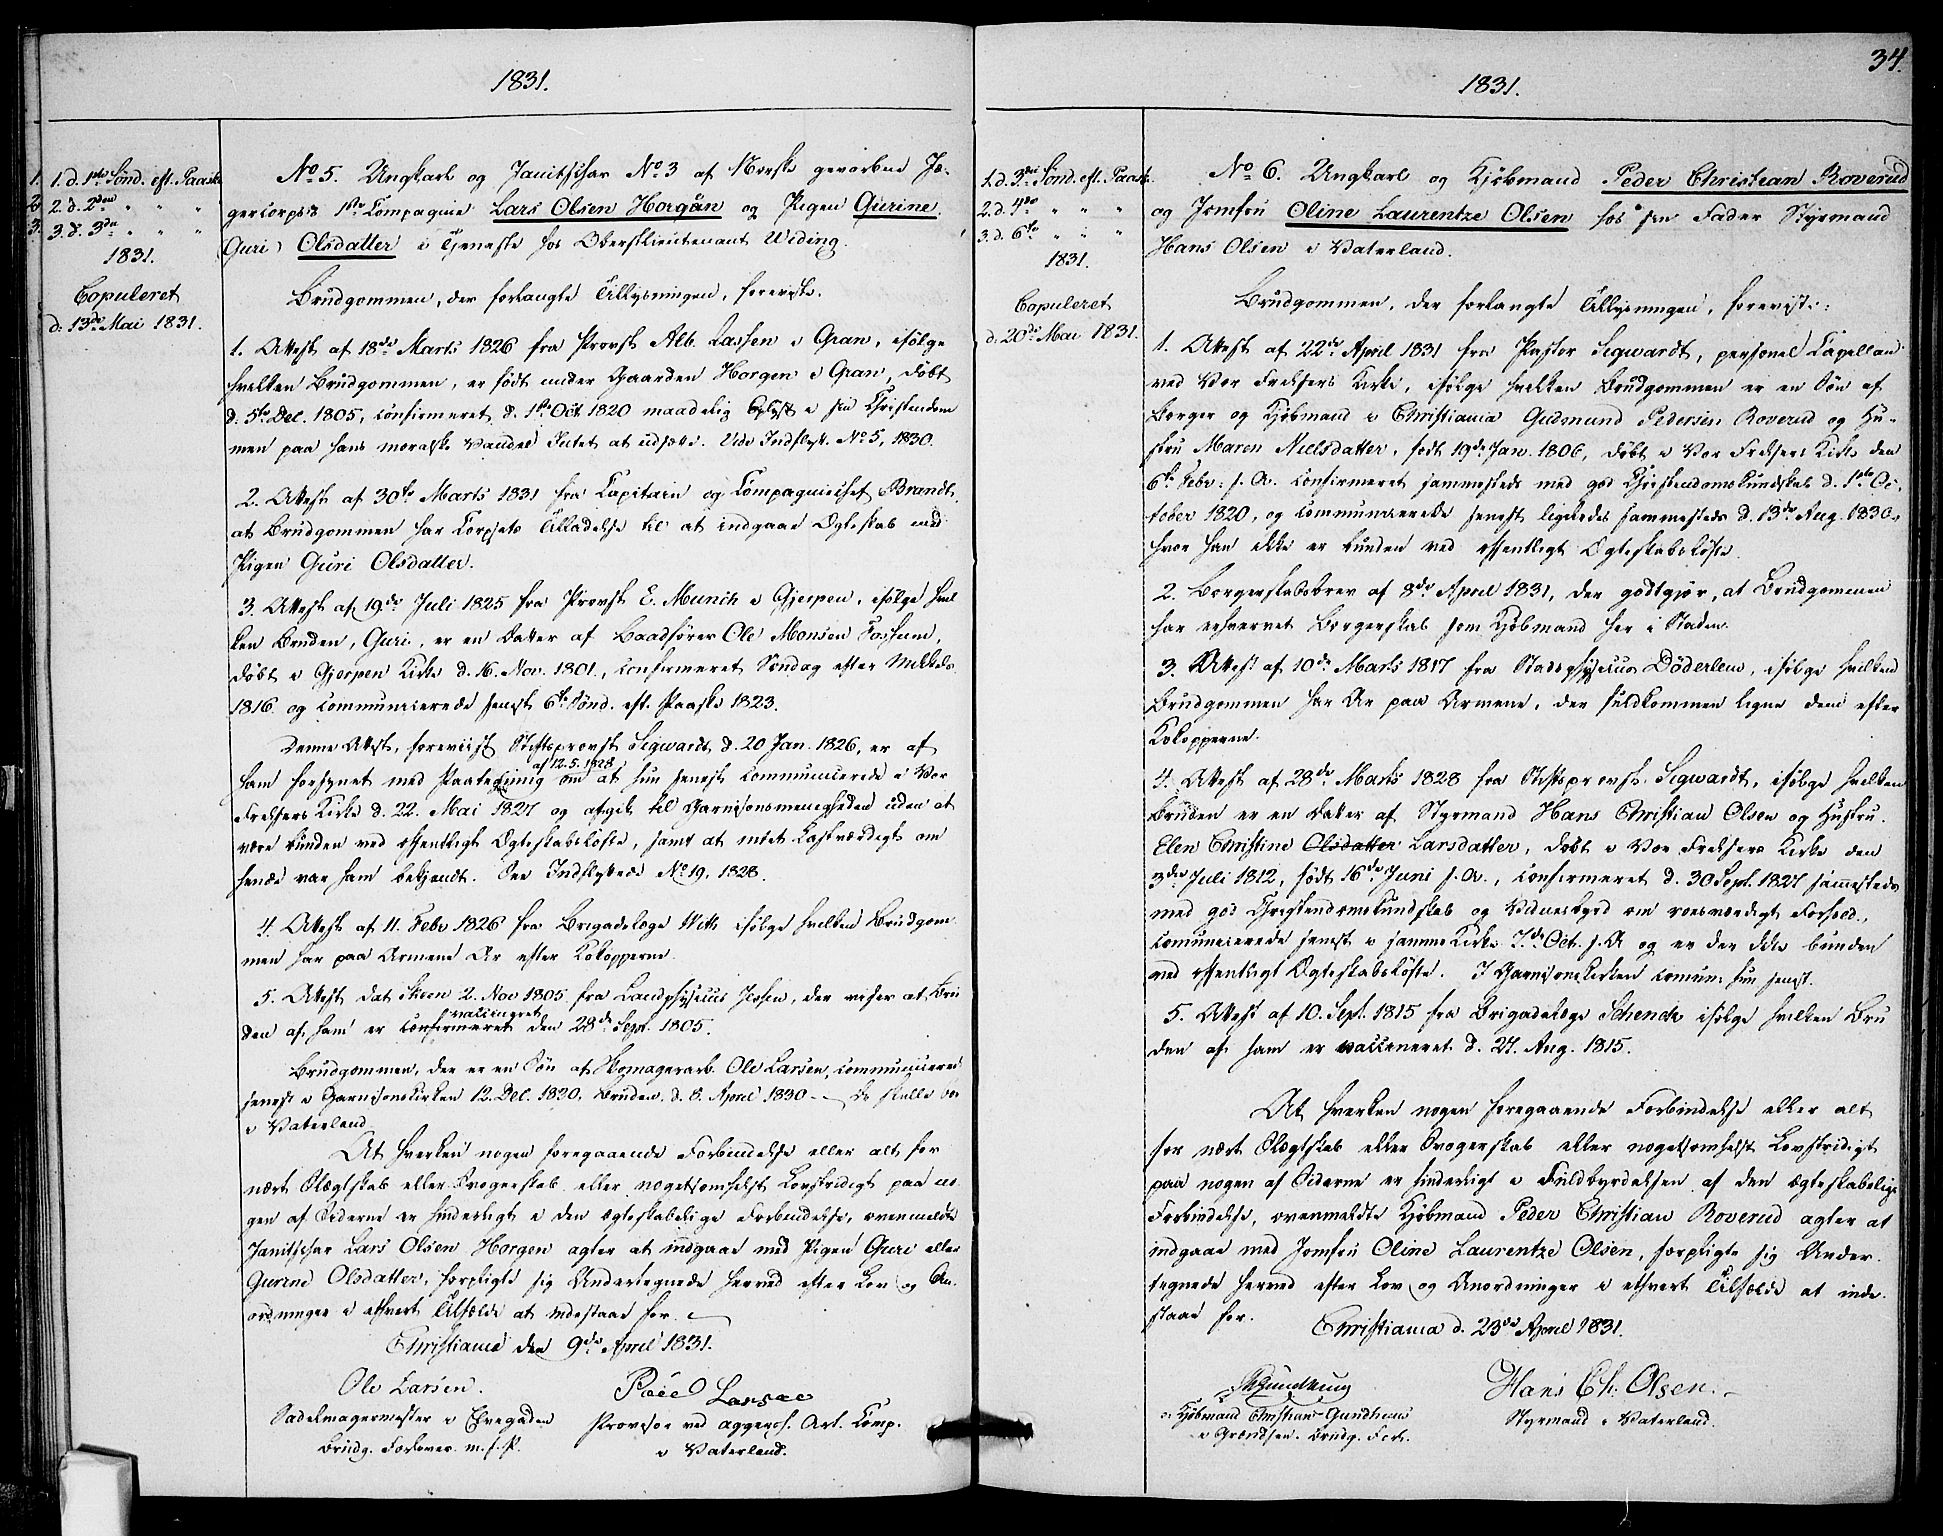 1831.
1. 1. d. 1ste Sønd. eft. Paaske
2. 2. d. 2den " " "
3. 3. d. 3die " " "
1831.
Copuleret
d. 13de Mai 1831.
No 5. Ungkarl og Janitschar No 3 af Norske gevorbne Jæ-
gercorps's 1ste Compagnie Lars Olsen Horgån og Pigen Gurine
(Guri) Olsdatter i Tjeneste hos Oberstlieutenant Weding.
Brudgommen, der forlangte Tillysningen, foreviste.
1. Attest af 18de Marts 1826 fra Provst Alb. Lassen i Gran, ifølge
hvilken Brudgommen, er født under Gaarden Horgen i Gran, døbt
d. 5te Dec. 1805, confirmeret d. 1ste Oct 1820 maadelig oplyst i sin Christendom
men paa hans moralske Vandel Intet at udsætte. Vide Indflytt. No 5, 1830.
2. Attest af 30te Marts 1831 fra Capitain og Compagniechef Brandt,
at Brudgommen har Corpsets Tilladelse til at indgaae Ægteskab med
Pigen Guri Olsdatter.
3. Attest af 19de Juli 1825 fra Provst E. Munch i Gjerpen, ifølge hvil
ken Bruden, Guri, er en Datter af Baadfører Ole Monsen Fossum,
døbt i Gjerpen Kirke d. 16. Nov. 1801, confirmeret Søndag efter Mikkels
1816 og communicerede senest 6te Sønd. eft. Paaske 1823.
Denne Attest, foreviist Stiftsprovst Sigwardt d. 20 Jan. 1826, er af
af 12.5.1828
ham forsynet med Paategning om at hun senest communicerede i Vor
Frelsers Kirke d. 22. Mai 1827 og afgik til Garnisonsmenigheden uden at
være bunden ved offentligt Ægteskabsløfte, samt at intet Lastværdigt om
hende var ham bekjendt. See Indflyttede No 19, 1828.
4. Attest af 11. Febr 1826 fra Brigadelæge With ifølge hvilken Brudgom
men har paa Armene Ar efter Kokopperne.
5. Attest dat Skeen 2. Nov 1805 fra Landphysicus Jessen, der viser at Bru
vaccineret
den af ham er confirmeret den 28de Sept. 1805.
Brudgommen, der er en Søn af Skomagerarb. Ole Larsen, communicered
senest i Garnisonskirken 12. Dec. 1830, Bruden d. 8. April 1830 — De skulle boe
i Vaterland
At hverken nogen foregaaende Forbindelse eller alt for
nært Slægtskab eller Svogerskab eller nogetsomhelst Lovstridigt paa no
gen af Siderne er hinderligt i den ægteskabelige Forbindelse, ovenmeldte
Janitschar Lars Olsen Horgen agter at indgaae med Pigen Guri eller
Gurine Olsdatter, forpligte sig Undertegnede herved efter Lov og An-
ordninger i ethvert Tilfælde at indestaae for.
Christiania den 9de April 1831.
Ole Larsen.
Sadelmagermester i Elvegaden
Brudg. Forlover. m. f. P.
Larsen
Provisor ved aggeres. Art. Comp.
i Vaterland.
34.
1831.
1. d. 3die Sønd. eft. Paask.
2. d. 4de " " "
3. d. 6te " " "
1831.
Copuleret
d. 20de Mai 1831.
No 6. Ungkarl og Kjøbmand Peder Christian Roverud
og Jomfru Oline Laurentze Olsen hos sin Fader Styrmand
Hans Olsen i Vaterland.
Brudgommen, der forlangte Tillysningen, foreviste:
1. Attest af 22de April 1831 fra Pastor Sigwardt, personel Capellan
ved Vor Frelsers Kirke, ifølge hvilken Brudgommen er en Søn af
Borger og Kjøbmand i Christiania Gudmund Pedersen Roverud og Hu-
stru Maren Nielsdatter, født 19de Jan. 1806, døbt i Vor Frelsers Kirke den
6te Febr: s. A. confirmeret sammesteds med god Christendomskundskab d. 1ste Oc,
tober 1820, og communicerede senest ligeledes sammesteds d. 13de Aug. 1830,
hvor han ikke er bunden ved offentligt Ægteskabsløfte.
2. Borgerskabsbrev af 8de April 1831, der godtgjør, at Brudgommen
har erhvervet Borgerskab som Kjøbmand her i Staden.
3. Attest af 10de Marts 1817 fra Stadsphysicus Döderlein, ifølge hvilken
Brudgommen har Ar paa Armene, der fuldkommen ligne dem efter
Kokopperne.
4. Attest af 28de Marts 1828 fra Stiftsprovst Sigwardt, ifølge hvilken
Bruden er en Datter af Styrmand Hans Christian Olsen og Hustru
Elen Christine Olsdatter Larsdatter, døbt i Vor Frelsers Kirke den
3die Juli 1812, født 16de Juni s. A., confirmeret d. 30 Sept. 1827 sammesteds
med god Christendomskundskab og Vidnesbyrd om roesværdigt Forhold,
communicerede senest i samme Kirke 7de Oct. s. A og er der ikke bunden
ved offentligt Ægteskabsløfte. I Garnisonskirken commun: hun senest.
5. Attest af 10. Sept. 1815 fra Brigadelæge Schenck ifølge hvilken Bru
den af ham er vaccineret d. 27. Aug. 1815.
At hverken nogen foregaaende Forbindelse eller alt
for nært Slægtskab eller Svogerskab eller nogetsomhelst Lovstridigt
paa nogen af Siderne er hinderligt i Fuldbyrdelsen af den ægteskabelige
Forbindelse, ovenmeldte Kjøbmand Peder Christian Roverud agter at
indgaae med Jomfru Oline Laurentze Olsen, forpligte sig Under-
tegnede herved efter Lov og Anordninger i ethvert Tilfælde at inde-
staae for.
Christiania d. 23de April 1831.
Kjøbmand Christian Gundersen
i Grændsen. Brudg. Forl.
Hans Ch: Olsen.
Styrmand i Vaterland.